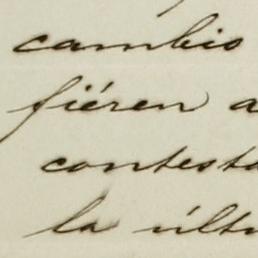 cambio
fiéren a
contesta
la últi